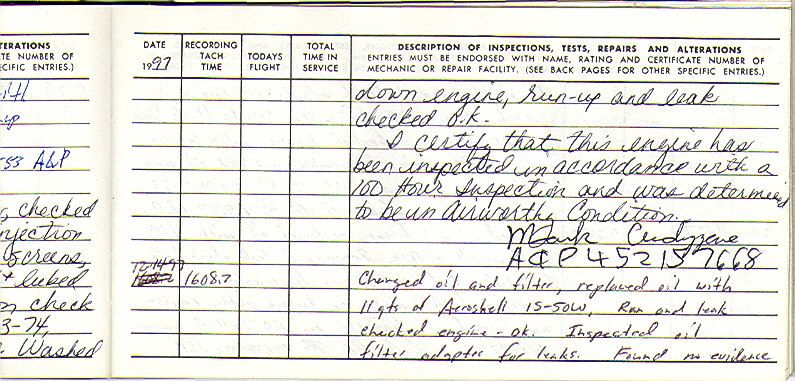 TERATIONS
TE NUMBER OF
ECIFIC ENTRIES.)
53 A&P
checked
njection
screens,
leaked
check
3-74,
Washed
DATE
1997
RECORDING
TACH
TIME
TODAYS
FLIGHT
TOTAL
TIME IN
SERVICE
DESCRIPTION OF INSPECTIONS, TESTS, REPAIRS AND ALTERATIONS
ENTRIES MUST BE ENDORSED WITH NAME, RATING AND CERTIFICATE NUMBER OF
MECHANIC OR REPAIR FACILITY. (SEE BACK PAGES FOR OTHER SPECIFIC ENTRIES.)
down engine, run-up and leak
checked o.k.
I certify that this engine has
been inspected in accordance with a
100 Hour Inspection and was determined
to be in Airworthy Condition.
Mark
A&P 452157668
12-14-97
1608.7 Changed oil and filter, replaced oil with
11 qts of Aeroshell 15-50W, Run and leak
checked engine - ok. Inspected oil
filter adapter for leaks. Found no evidence